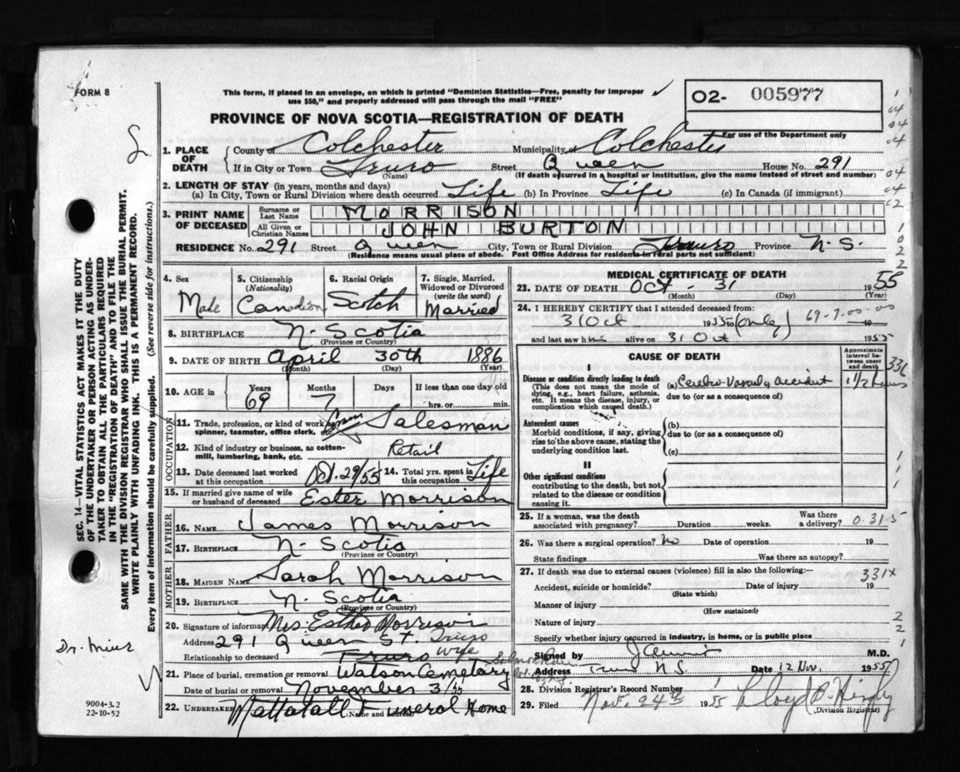 FORM 8
This form, if placed in an envelope, on which is printed "Dominion Statistics—Free, penalty for improper
use $50," and properly addressed will pass through the mail "FREE"
02- 005977
For use of the Department only
PROVINCE OF NOVA SCOTIA—REGISTRATION OF DEATH
1. PLACE OF DEATH County of Colchester Municipality of Colchester
If in City or Town Truro Street Queen House No. 291
(Name) (If death occurred in a hospital or institution, give the name instead of street and number)
2. LENGTH OF STAY (in years, months and days)
(a) In City, Town or Rural Division where death occurred Life (b) In Province Life (c) In Canada (if immigrant)
3. PRINT NAME OF DECEASED Surname or Last Name MORRISON
All Given or Christian Names JOHN BURTON
RESIDENCE No. 291 Street Queen City, Town or Rural Division Truro Province N.S.
(Residence means usual place of abode. Post Office Address for residents in rural parts not sufficient)
4. Sex Male
5. Citizenship (Nationality) Canadian
6. Racial Origin Scotch
7. Single, Married, Widowed or Divorced (write the word) Married
8. BIRTHPLACE N. Scotia
(Province or Country)
9. DATE OF BIRTH April 30th 1886
(Month) (Day) (Year)
10. AGE in Years 69 Months 7 Days If less than one day old
hrs. or min.
OCCUPATION
11. Trade, profession, or kind of work as spinner, teamster, office clerk, etc. Salesman
12. Kind of industry or business, as cotton-mill, lumbering, bank, etc. Retail
13. Date deceased last worked at this occupation Oct. 29/55 14. Total yrs. spent in this occupation Life
15. If married give name of wife or husband of deceased Ester Morrison
FATHER
16. NAME James Morrison
17. BIRTHPLACE N. Scotia
(Province or Country)
MOTHER
18. MAIDEN NAME Sarah Morrison
19. BIRTHPLACE N. Scotia
(Province or Country)
20. Signature of informant Mrs Esther Morrison
Address 291 Queen St. Truro
Relationship to deceased Truro wife
21. Place of burial, cremation or removal Watson Cemetary
Date of burial or removal November 3/55
22. UNDERTAKER Mattatall Funeral Home
(Name and Address)
MEDICAL CERTIFICATE OF DEATH
23. DATE OF DEATH Oct - 31 1955
(Month) (Day) (Year)
24. I HEREBY CERTIFY that I attended deceased from:
31 Oct 1955 to (only) 19
69-7-00-00
and last saw him alive on 31 Oct 1955
CAUSE OF DEATH
Approximate interval between onset and death
I
Disease or condition directly leading to death
(This does not mean the mode of dying, e.g., heart failure, asthenia, etc. It means the disease, injury, or complication which caused death.
(a) Cerebro-Vascular Accident 1 1/2 hours
due to (or as a consequence of)
331
Antecedent causes
Morbid conditions, if any, giving rise to the above cause, stating the underlying condition last.
(b)
due to (or as a consequence of)
(c)
II
Other significant conditions
contributing to the death, but not related to the disease or condition causing it.
25. If a woman, was the death associated with pregnancy? Duration weeks. Was there a delivery?
0-31-5
26. Was there a surgical operation? No Date of operation 19
State findings Was there an autopsy?
27. If death was due to external causes (violence) fill in also the following:—
331x
Accident, suicide or homicide? Date of injury 19
(State which)
Manner of injury
(How sustained)
Nature of injury
Specify whether injury occurred in industry, in home, or in public place
Signed by M.D.
Address Truro N.S. Date 12 Nov. 1955
28. Division Registrar's Record Number
29. Filed Nov. 24th 1955 Lloyd B.
Division Registrar
SEC. 14—VITAL STATISTICS ACT MAKES IT THE DUTY
OF THE UNDERTAKER OR PERSON ACTING AS UNDER-
TAKER TO OBTAIN ALL THE PARTICULARS REQUIRED
IN THE "REGISTRATION OF DEATH" AND TO FILE THE
SAME WITH THE DIVISION REGISTRAR WHO SHALL ISSUE THE BURIAL PERMIT.
WRITE PLAINLY WITH UNFADING INK. THIS IS A PERMANENT RECORD.
Every item of information should be carefully supplied. (See reverse side for instructions.)
9004-3.2
22-10-52